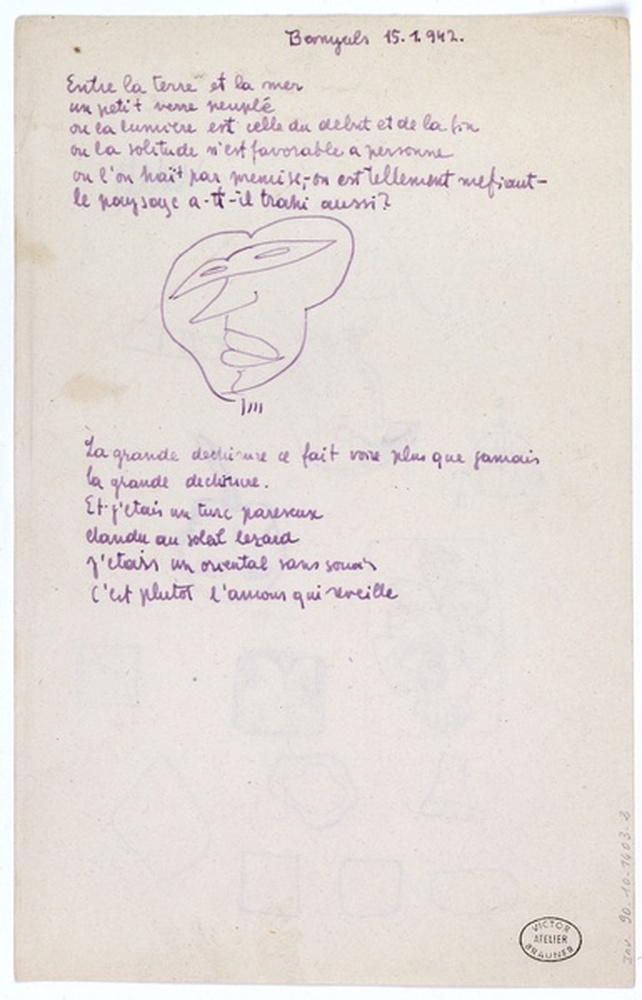 Banyuls 15.1.942.
Entre la terre et la mer
un petit verre peuplé
ou la lumiere est celle du debut et de la fin
ou la solitude n'est favorable a personne
ou l'on hait par premise,-on est tellement mefiant-
le paysage a-t-il trahi aussi?
La grande dechirure ce fait voire plus que jamais
la grande dechirure.
Et j'etais un turc paresseux
etandu au soleil lezard
j'etais un oriental sans soucis
C'est plutot l'amour qui reveille
VICTOR
ATELIER
BRAUNER
Inv. 90-10-1403.2